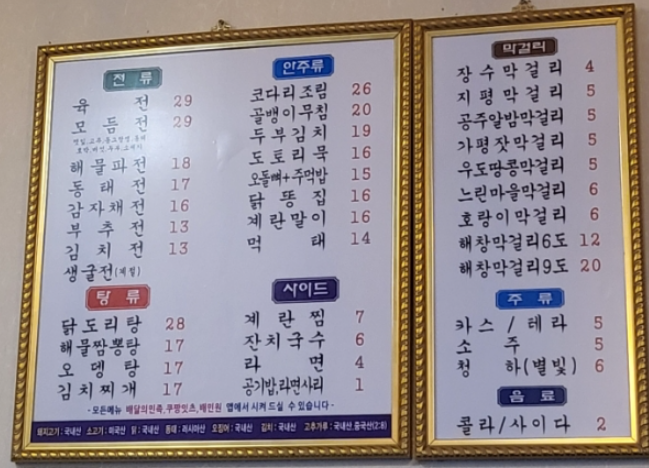 전 류
육 전 29
모 듬 전 29
해 물 파 전 18
동 태 전 17
감 자 채 전 16
부 추 전 13
김 치 전 13
생굴전(계절)
탕 류
닭 도 리 탕 28
해 물 짬 뽕 탕 17
오 뎅 탕 17
김 치 찌 개 17
안주류
코다리조림 26
골뱅이무침 20
두 부 김 치 19
도 토 리 묵 16
오돌뼈+주먹밥 15
닭 똥 집 16
계 란 말 이 16
먹 태 14
사이드
계 란 찜 7
잔 치 국 수 6
라 면 4
공기밥,라면사리 1
- 모든메뉴 배달의민족,쿠팡잇츠,배민원 앱에서 시켜 드실 수 있습니다 -
돼지고기 : 국내산 소고기 : 미국산 닭 : 국내산 동태 : 러시아산 오징어 : 국내산 김치 : 국내산 고추가루 : 국내산,중국산(2:8)
막걸리
장 수 막 걸 리 4
지 평 막 걸 리 5
공주알밤막걸리 5
가평잣막걸리 5
우도땅콩막걸리 5
느린마을막걸리 6
호랑이막걸리 6
해창막걸리6도 12
해창막걸리9도 20
주 류
카 스 / 테 라 5
소 주 5
청 하(별빛) 6
음 료
콜라/사이다 2